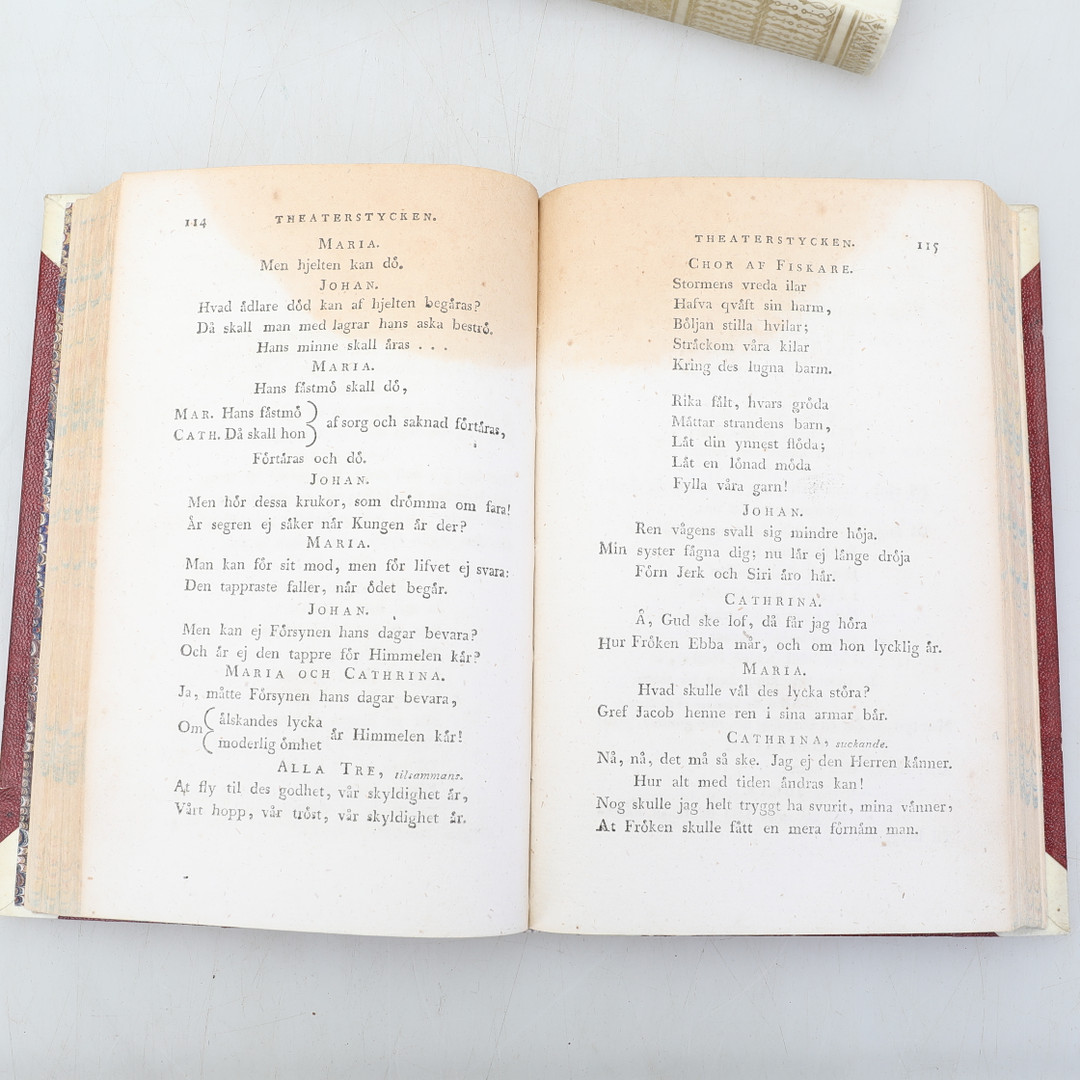 114 THEATERSTYCKEN.
MARIA.
Men hjelten kan dö.
JOHAN.
Hvad ädlare död kan af hjelten begäras?
Då skall man med lagrar hans aska beströ.
Hans minne skall äras . . .
MARIA.
Hans fästmö skall dö,
MAR. Hans fästmö } af sorg och saknad förtäras,
CATH. Då skall hon
Förtäras och dö.
JOHAN.
Men hör dessa krukor, som drömma om fara!
Är segren ej säker när Kungen är der?
MARIA.
Man kan för sit mod, men för lifvet ej svara:
Den tappraste faller, när ödet begär.
JOHAN.
Men kan ej Försynen hans dagar bevara?
Och är ej den tappre för Himmelen kär?
MARIA OCH CATHRINA.
Ja, måtte Försynen hans dagar bevara,
Om { älskandes lycka är Himmelen kär!
moderlig ömhet
ALLA TRE, tilsammans.
At fly til des godhet, vår skyldighet är,
Vårt hopp, vår tröst, vår skyldighet är.
THEATERSTYCKEN. 115
CHOR AF FISKARE.
Stormens vreda ilar
Hafva qväft sin harm,
Böljan stilla hvilar;
Sträckom våra kilar
Kring des lugna barm.
Rika fält, hvars gröda
Mättar strandens barn,
Låt din ynnest flöda;
Låt en lönad möda
Fylla våra garn!
JOHAN.
Ren vågens svall sig mindre höja.
Min syster fägna dig; nu lär ej länge dröja
Förn Jerk och Siri äro här.
CATHRINA.
Å, Gud ske lof, då får jag höra
Hur Fröken Ebba mår, och om hon lycklig är.
MARIA.
Hvad skulle väl des lycka störa?
Gref Jacob henne ren i sina armar bär.
CATHRINA, suckande.
Nå, nå, det må så ske. Jag ej den Herren känner.
Hur alt med tiden ändras kan!
Nog skulle jag helt tryggt ha svurit, mina vänner,
At Fröken skulle fått en mera förnäm man.